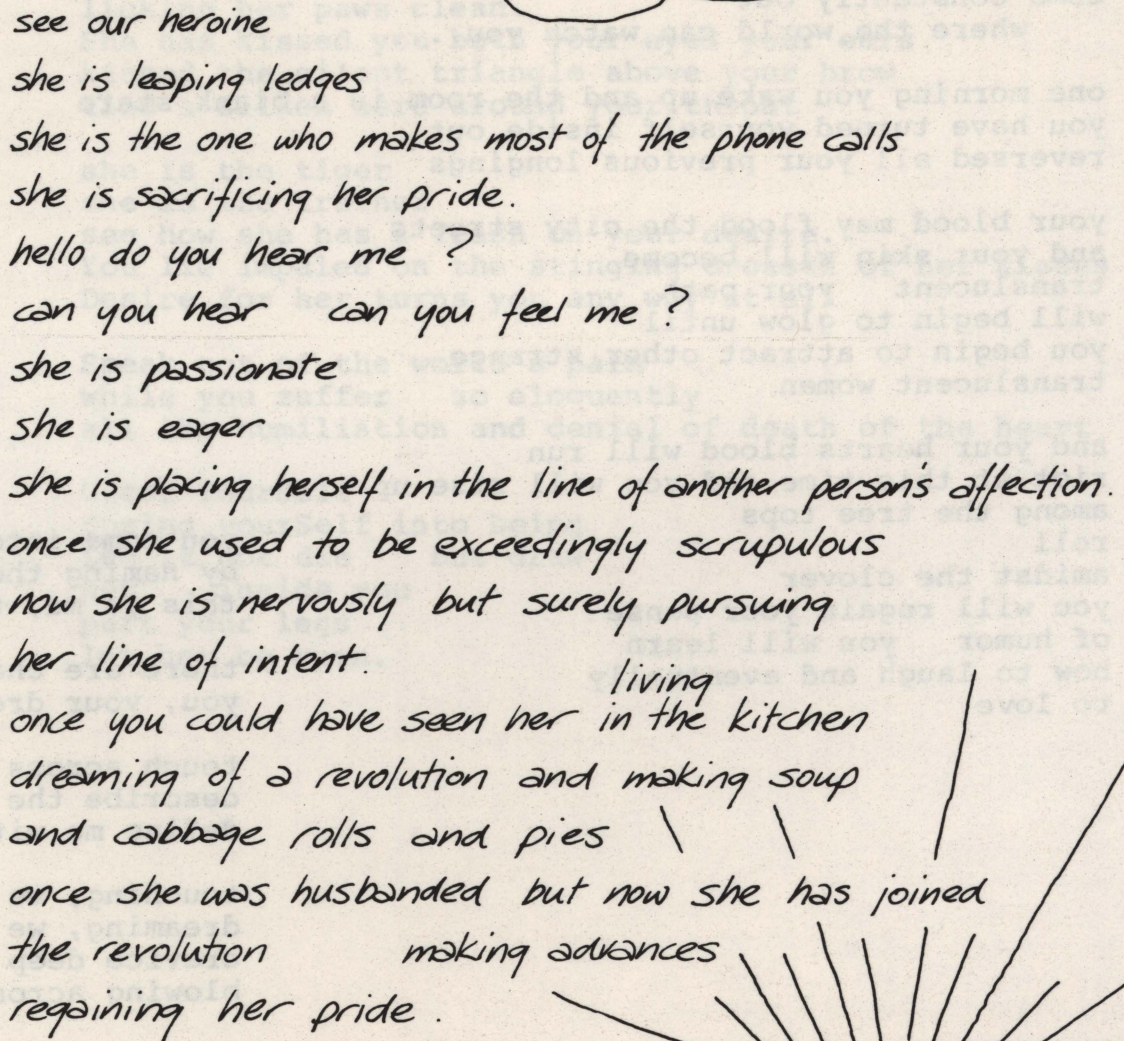 see our heroine
she is leaping ledges
she is the one who makes most of the phone calls
she is sacrificing her pride.
hello do you hear me ?
can you hear can you feel me ?
she is passionate
she is eager
she is placing herself in the line of another person's affection.
once she used to be exceedingly scrupulous
now she is nervously but surely pursuing
her line of intent.
living
once you could have seen her in the kitchen
dreaming of a revolution and making soup
and cabbage rolls and pies
once she was husbanded but now she has joined
the revolution making advances
regaining her pride.